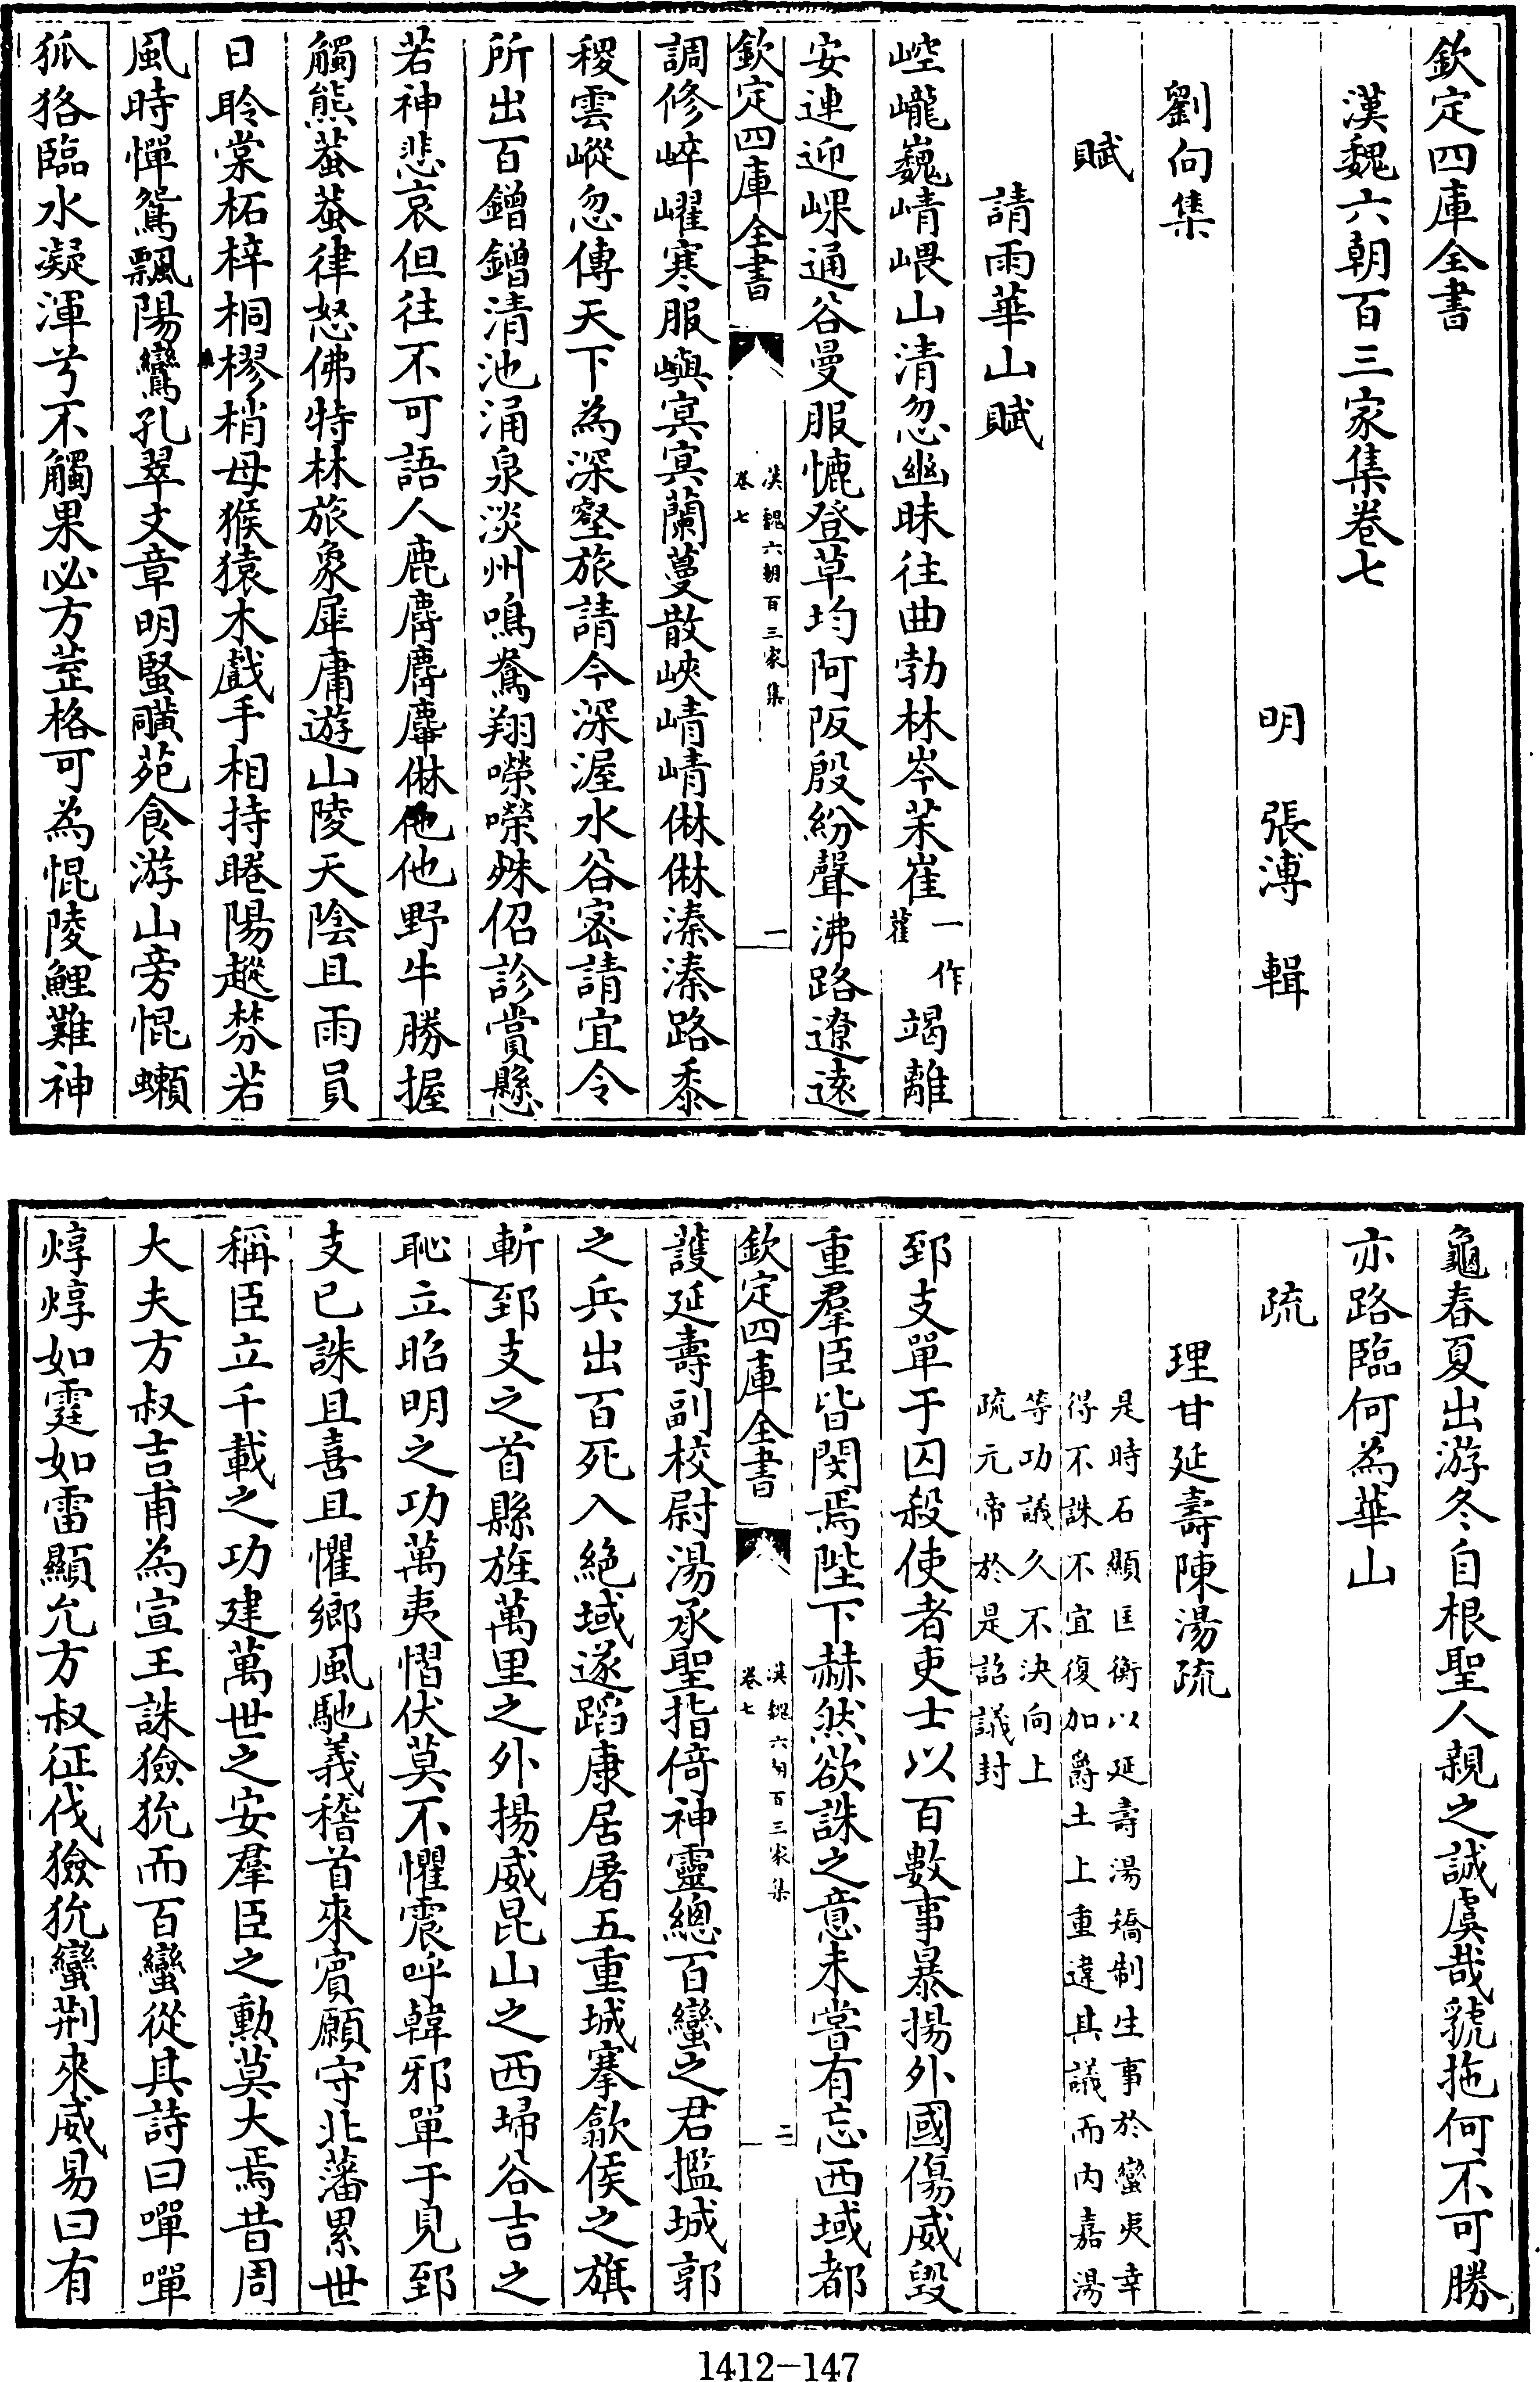 欽定四庫全書
漢魏六朝百三家集卷七
明　張溥　輯
劉向集
賦
請雨華山賦
崆巄巍崝崐山清忽幽昧往曲勃林岑茱崔一作藋竭離
安連迎崐通谷曼服憓登草均阿阪殷紛聲沸路遼遠
欽定四庫全書
漢魏六朝百三家集
卷七
一
調修崪嶵寒服嶼寞寞蘭蔓散峽崝崝㑣㑣溱溱路黍
稷雲嵷忽傳天下為深壑旅請今深渥水谷密請宜令
所出百鏳鏳清池涌泉淡州鳴鴦翔嚛嚛殊佋診賞懸
若神悲哀但往不可語人鹿麛麛麞㑣他他野牛勝握
觸熊蛬蛬律怒佛特林旅象犀庸遊山陵天陰且雨員
日聆棠柘梓桐樛梢母猴猿木戲手相持睠陽蹤棼若
風時憚鴛飄陽鸞孔翠文章明䝨䑋苑食游山旁惃蠏
狐狢臨水凝渾兮不觸果必方䒱格可為惃陵鯉難神
龜春夏出游冬自根聖人親之誠虞哉虢拖何不可勝
亦路臨何為華山
疏
理甘延壽陳湯疏
是時石顯匡衡以延壽湯矯制生事於蠻夷幸
得不誅不宜復加爵土上重違其議而内嘉湯
等功議久不決向上
疏元帝於是詔議封
郅支單于囚殺使者吏士以百數事暴揚外國傷威毀
重羣臣皆閔焉陛下赫然欲誅之意未嘗有忘西域都
欽定四庫全書
漢魏六朝百三家集
卷七
二
護延壽副校尉湯承聖指倚神靈總百蠻之君擥城郭
之兵出百死入絶域遂蹈康居屠五重城搴歙侯之旗
斬郅支之首縣旌萬里之外揚威昆山之西埽谷吉之
恥立昭明之功萬夷慴伏莫不懼震呼韓邪單于見郅
支已誅且喜且懼鄉風馳義稽首來賓願守北藩累世
稱臣立千載之功建萬世之安羣臣之勳莫大焉昔周
大夫方叔吉甫為宣王誅獫狁而百蠻從其詩曰嘽嘽
焞焞如霆如雷顯允方叔征伐獫狁蠻荆來威易曰有
1412-147